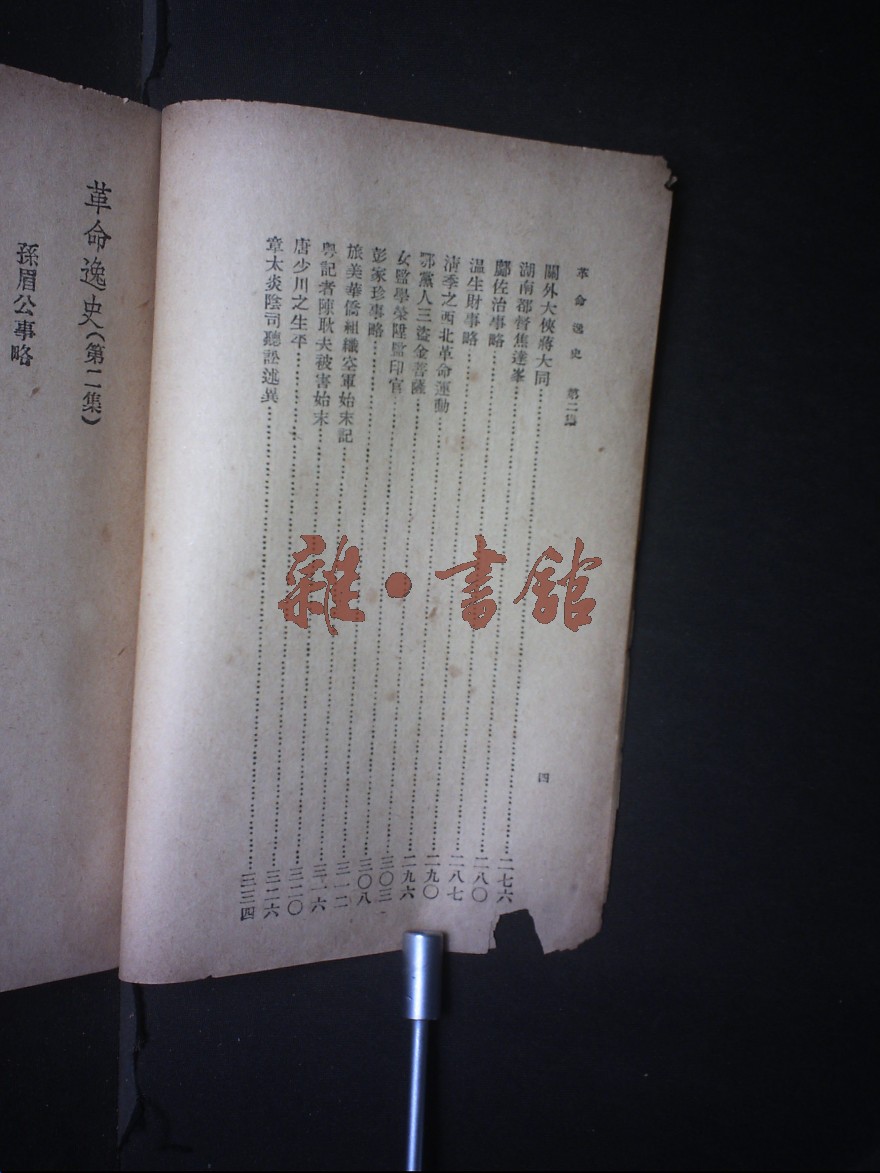 革命逸史 第二集
四
關外大俠蔣大同……二七六
湖南都督焦達峯……二八〇
鄺佐治事略……二八七
溫生財事略……二九〇
清季之西北革命運動……二九六
鄂黨人三盜金菩薩……三〇三
女監學榮陞監印官……三〇八
彭家珍事略……三一二
旅美華僑組織空軍始末記……三一六
粵記者陳耿夫被害始末……三二〇
唐少川之生平……三二六
章太炎陰司聽訟述異……三三四
革命逸史(第二集)
孫眉公事略
雜·書館